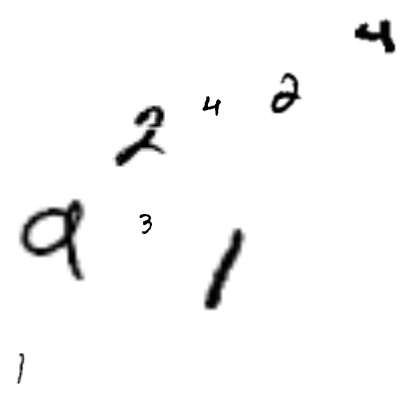 4
2 4 2
9 3 1
1